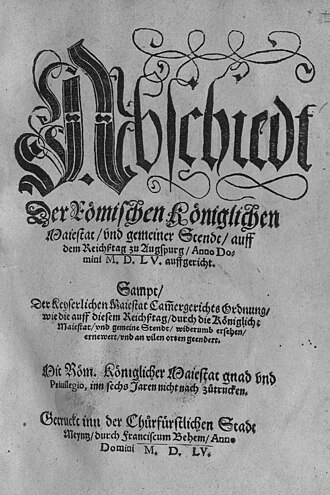 Abschiedt
Der Römischen Königlichen
Maiestat/ vnd gemeiner Stende/ auff
dem Reichßtag zu Augspurg/ Anno Do-
mini M. D. LV. auffgericht.
Sampt/
Der Keyserlichen Maiestat Cam̃ergerichts Ordnung/
wie die auff diesem Reichßtag/ durch die Königliche
Maiestat/ vnd gemeine Stende/ widerumb ersehen/
ernewert/ vnd an vilen orten geendert.
Mit Röm. Königlicher Maiestat gnad vnd
Priuilegio, inn sechs Jaren nicht nach zůtrucken.
Getruckt inn der Churfürstlichen Stadt
Meyntz/ durch Franciscum Behem/ Anno
Domini M. D. LV.